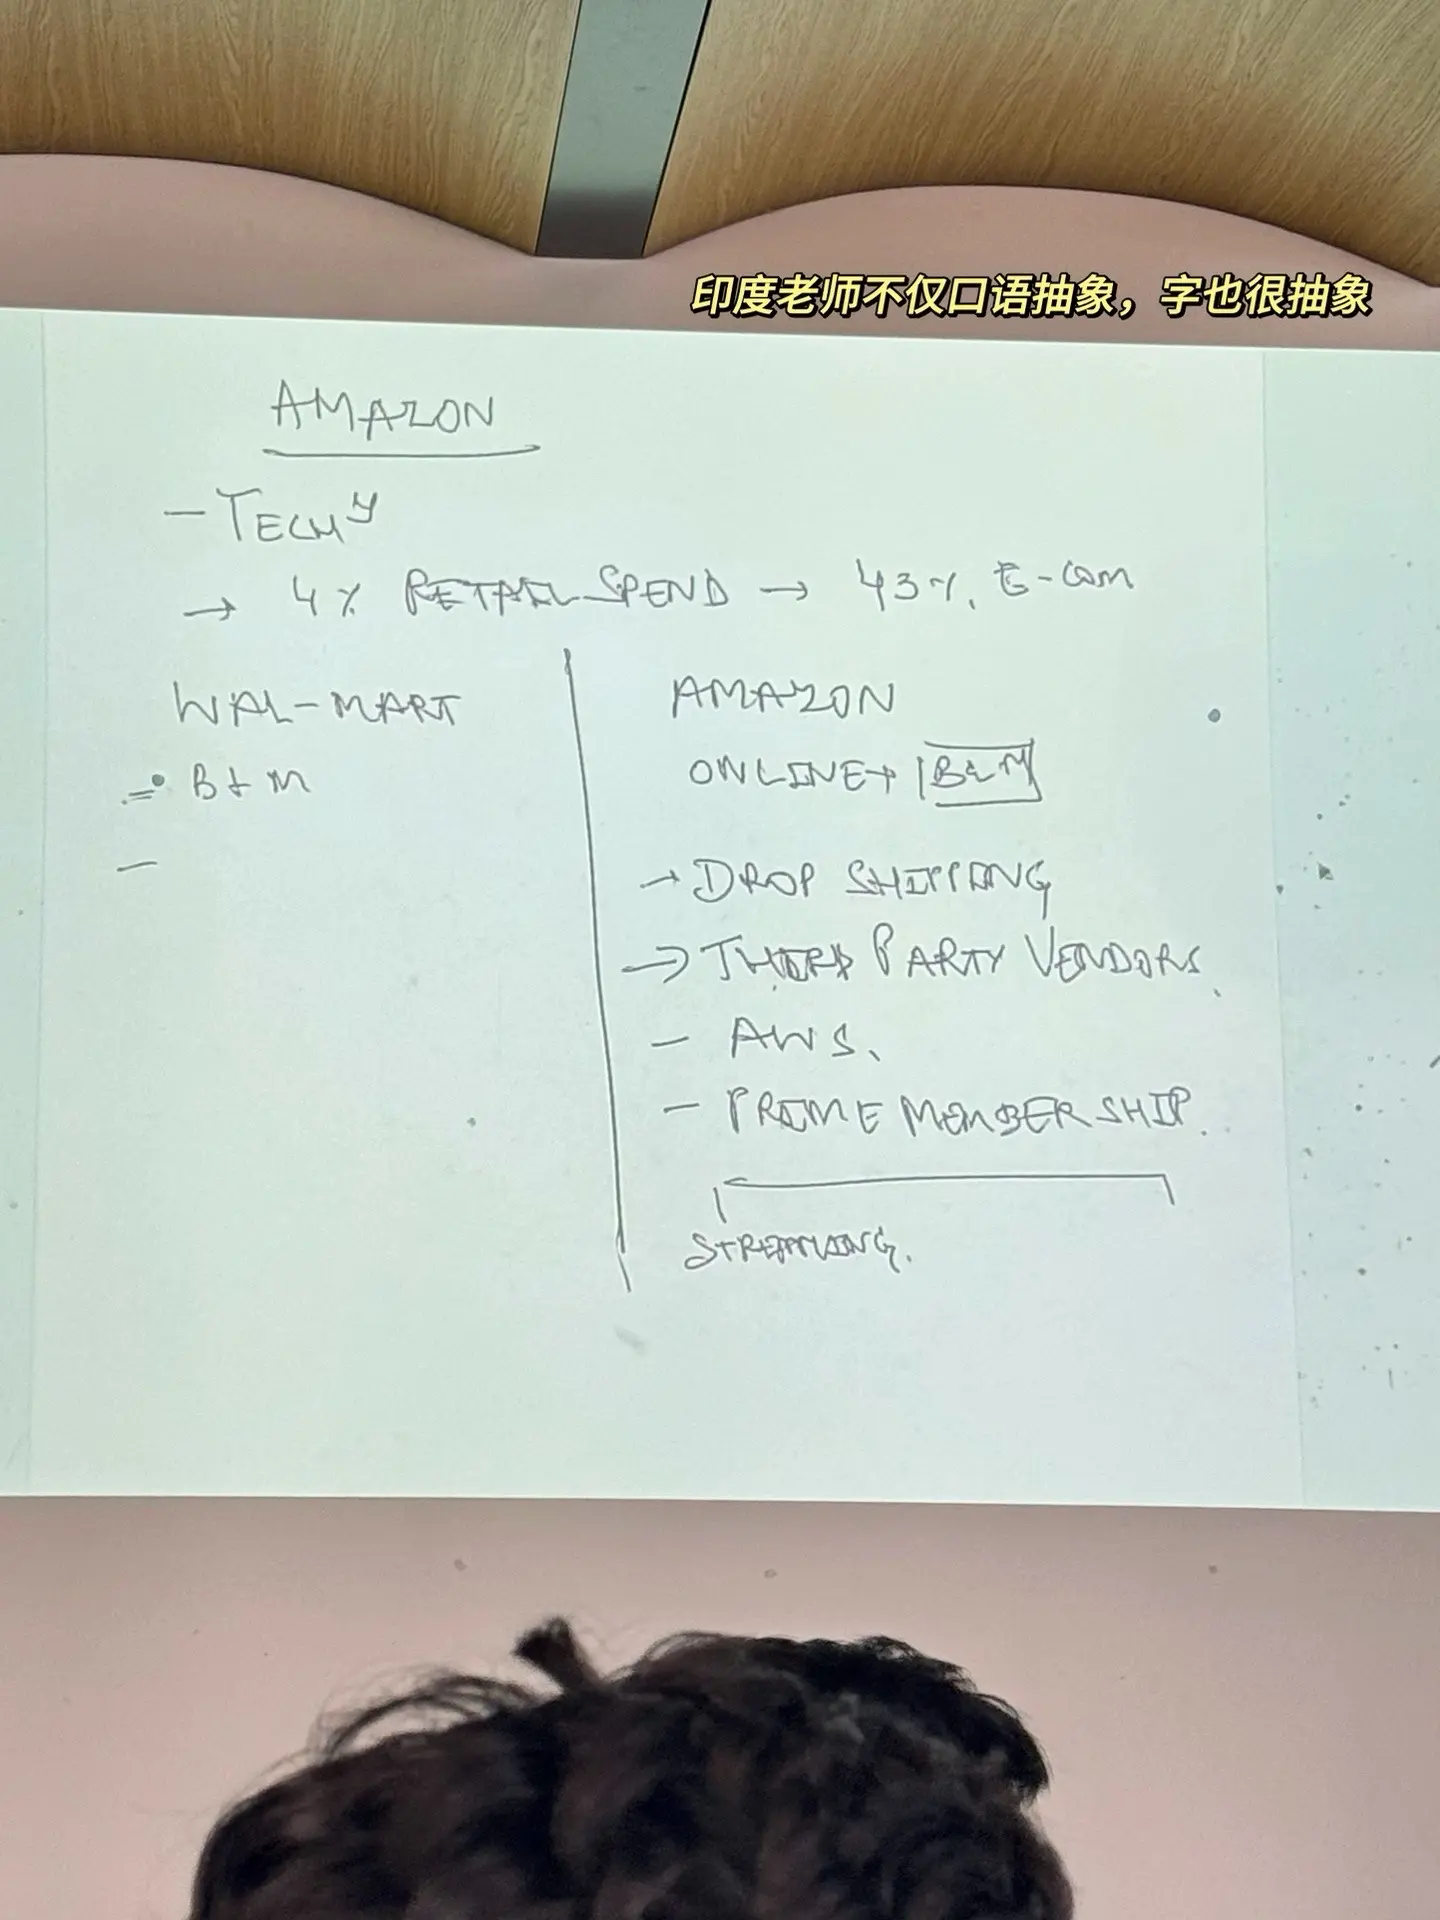 印度老师不仅口语抽象，字也很抽象
AMAZON
- TECHY
→ 4% RETAIL SPEND → 43%. E-COM
WAL-MART
B & M
-
AMAZON
ONLINE + B & M
→ DROP SHIPPING
→ THIRD PARTY VENDORS.
- AWS.
- PRIME MEMBERSHIP.
STREAMING.